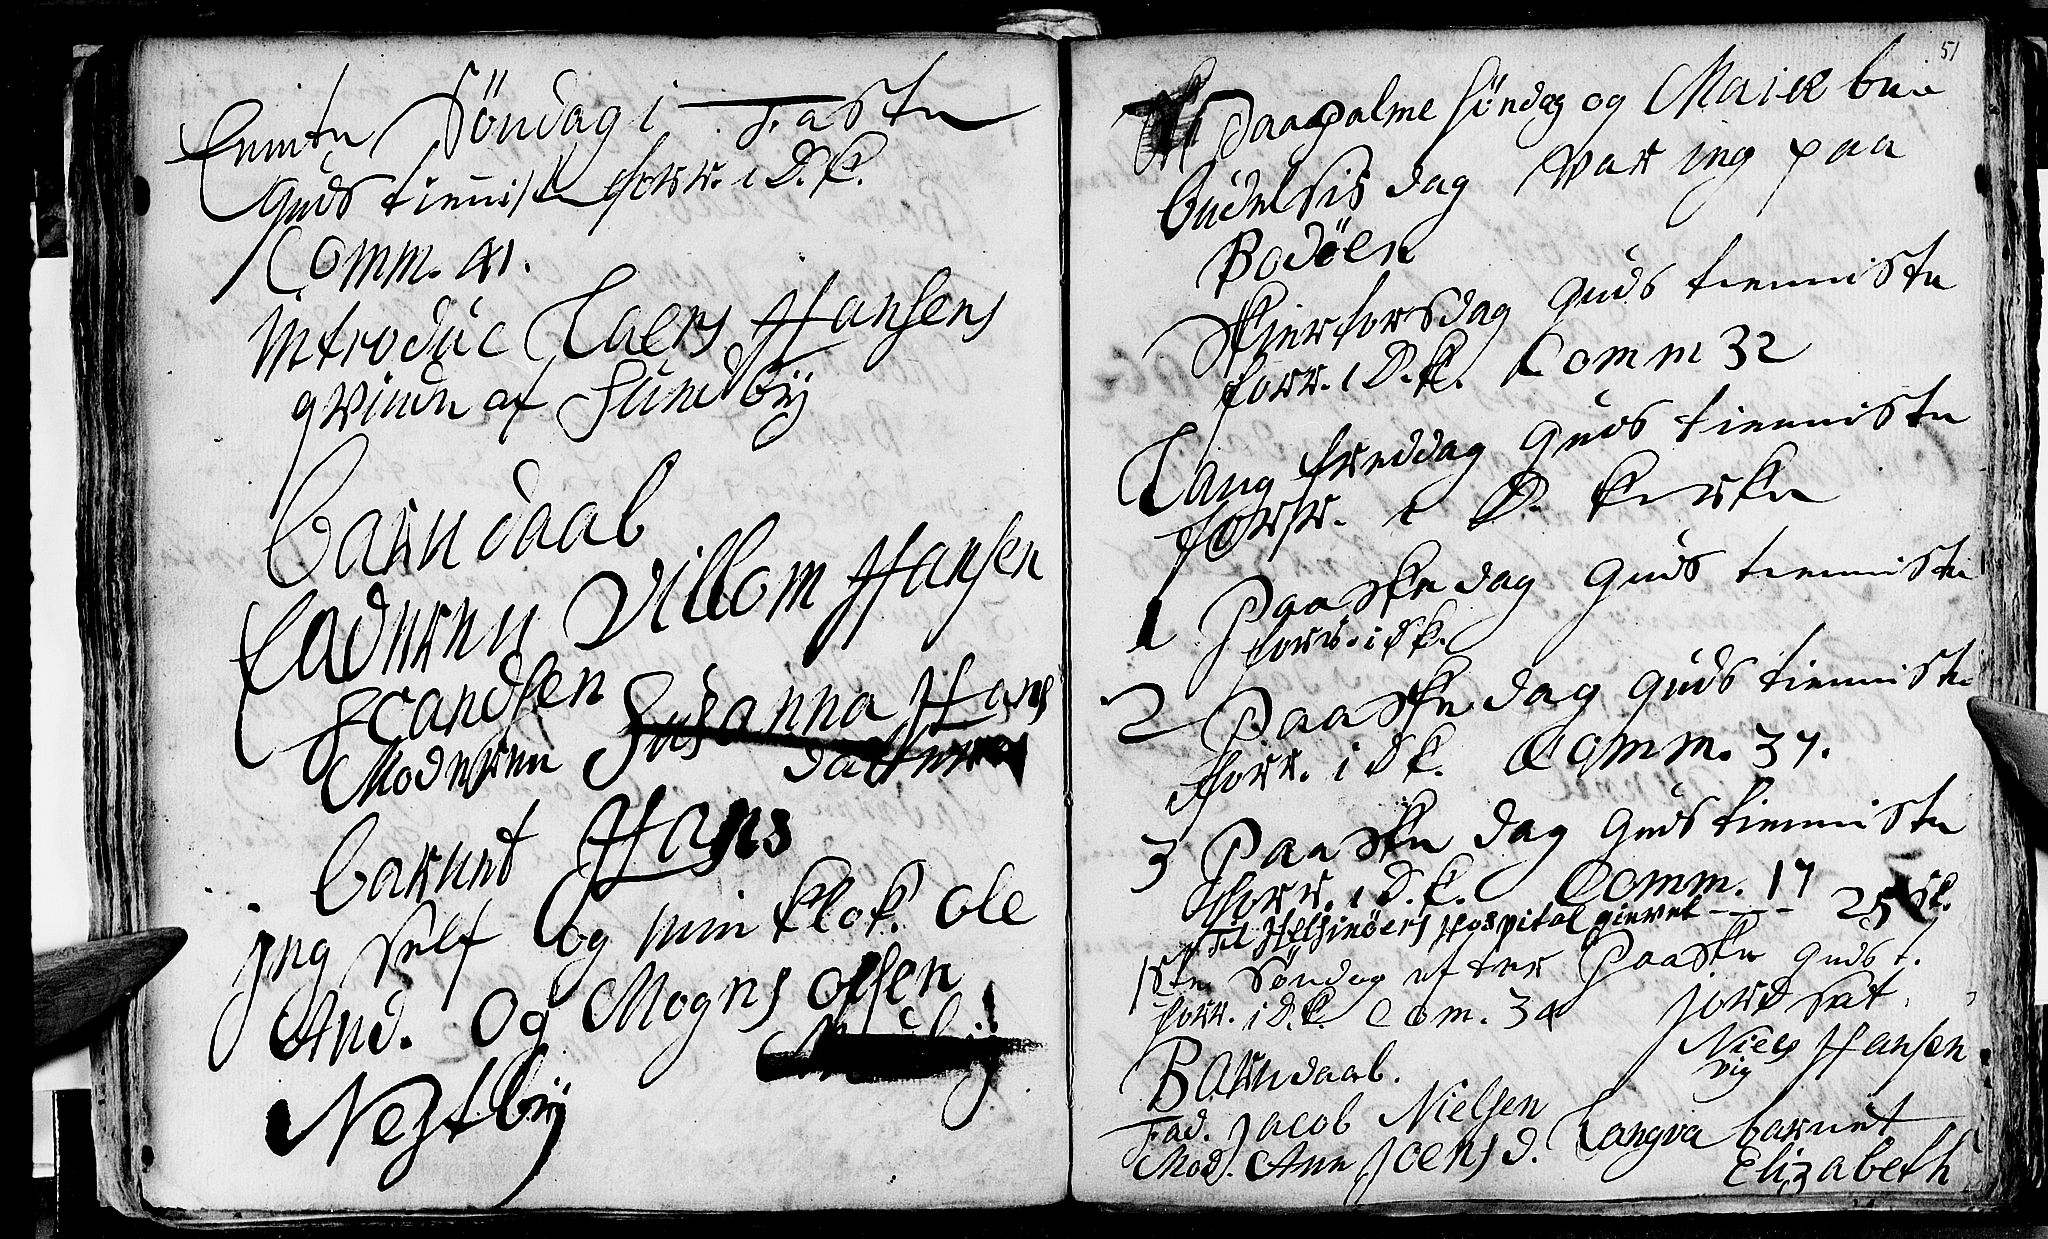 femte Söndag i Faste
Guds tienniste forr. i D.K.
Comm. 41.
Introduc Laers Hansens
qvinde af Sundby
Barnedaab
Faderen Villom Hansen
Moderen Susanna Hans
datter
barnet Hans
jeg self og min klok. Ole
And. Og Mogns Olsen
Nestbÿ
51
Paa palme söndag og Mariæ be
budelsis dag var ieg paa
Bodöen
Skierforsdag Guds tienniste
forr. i D.K. Comm 32
Lang freddag Guds tienniste
forr. i D. Kirke
1 Paaske dag Guds tienniste
forr. i D.K.
2 Paaske dag Guds tienniste
forr. i D.K. Comm. 37.
3 Paaske dag Guds tienniste
forr. i D.K. Comm. 17
Til Helsinöers Hospital gievet - - - 25 sk.
1ste Söndag efter Paaske Guds t.
forr. i D.K. Com. 34 jord sat
Niels Hansen
vig
Barnedaab.
Fad. Jacob Nielsen Langva barnet
Mod. Ane Joens d. Elizabeth